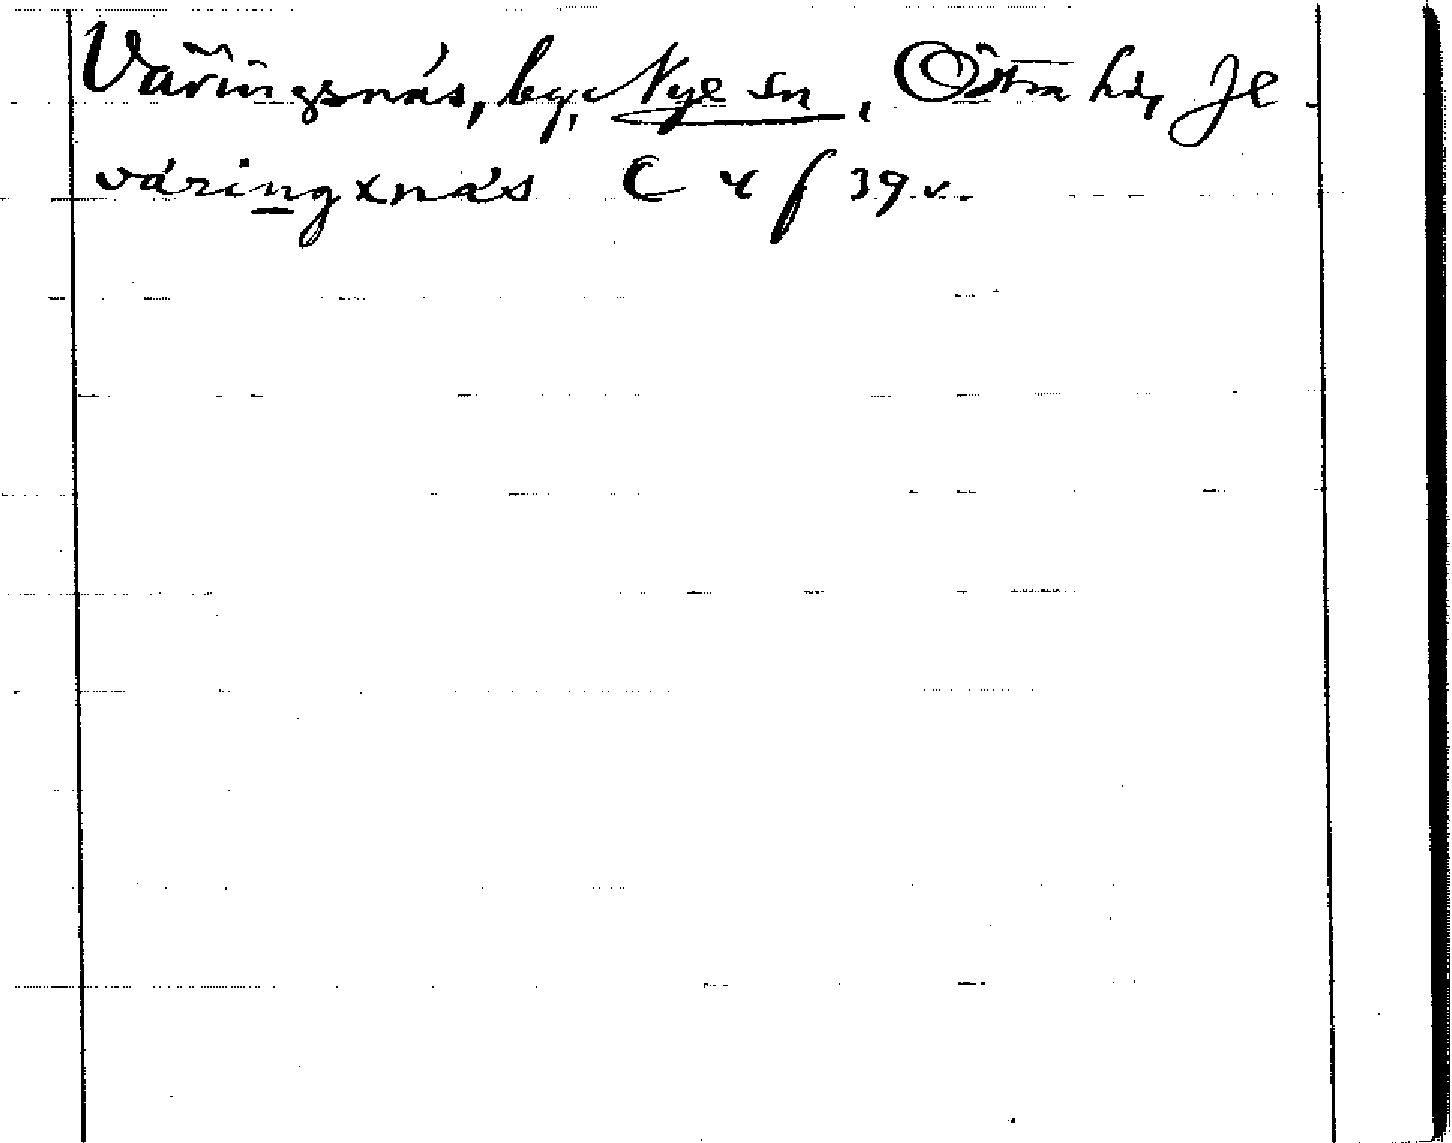 Väringsnäs, by, Nye sn, Östra hd, Jl.
väringxnäs C 4 f 39 v.